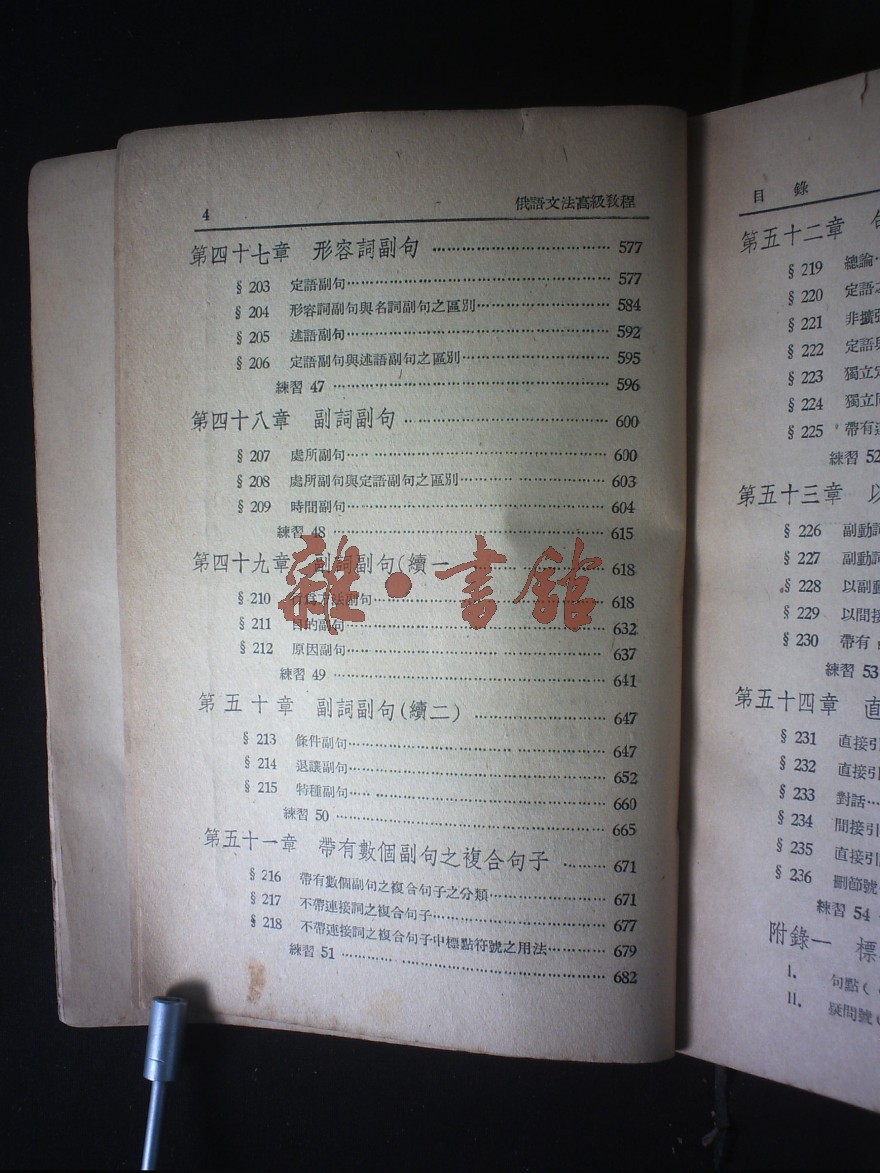 4 俄語文法高級敎程
第四十七章 形容詞副句 577
§ 203 定語副句 577
§ 204 形容詞副句與名詞副句之區別 584
§ 205 述語副句 592
§ 206 定語副句與述語副句之區別 595
練習 47 596
第四十八章 副詞副句 600
§ 207 處所副句 600
§ 208 處所副句與定語副句之區別 603
§ 209 時間副句 604
練習 48 615
第四十九章 副詞副句(續一 618
§ 210 行爲方法副句 618
§ 211 目的副句 632
§ 212 原因副句 637
練習 49 641
第五十章 副詞副句(續二) 647
§ 213 條件副句 647
§ 214 退讓副句 652
§ 215 特種副句 660
練習 50 665
第五十一章 帶有數個副句之複合句子 671
§ 216 帶有數個副句之複合句子之分類 671
§ 217 不帶連接詞之複合句子 677
§ 218 不帶連接詞之複合句子中標點符號之用法 679
練習 51 682
雜·書館
目錄
第五十二章
§ 219 總論
§ 220 定語
§ 221 非擴
§ 222 定語
§ 223 獨立
§ 224 獨立
§ 225 帶有
練習 52
第五十三章 以
§ 226 副動
§ 227 副動
§ 228 以副動
§ 229 以間接
§ 230 帶有
練習 53
第五十四章 直
§ 231 直接引
§ 232 直接引
§ 233 對話
§ 234 間接引
§ 235 直接引
§ 236 刪節號
練習 54
附錄一 標
I. 句點(
II. 疑問號(